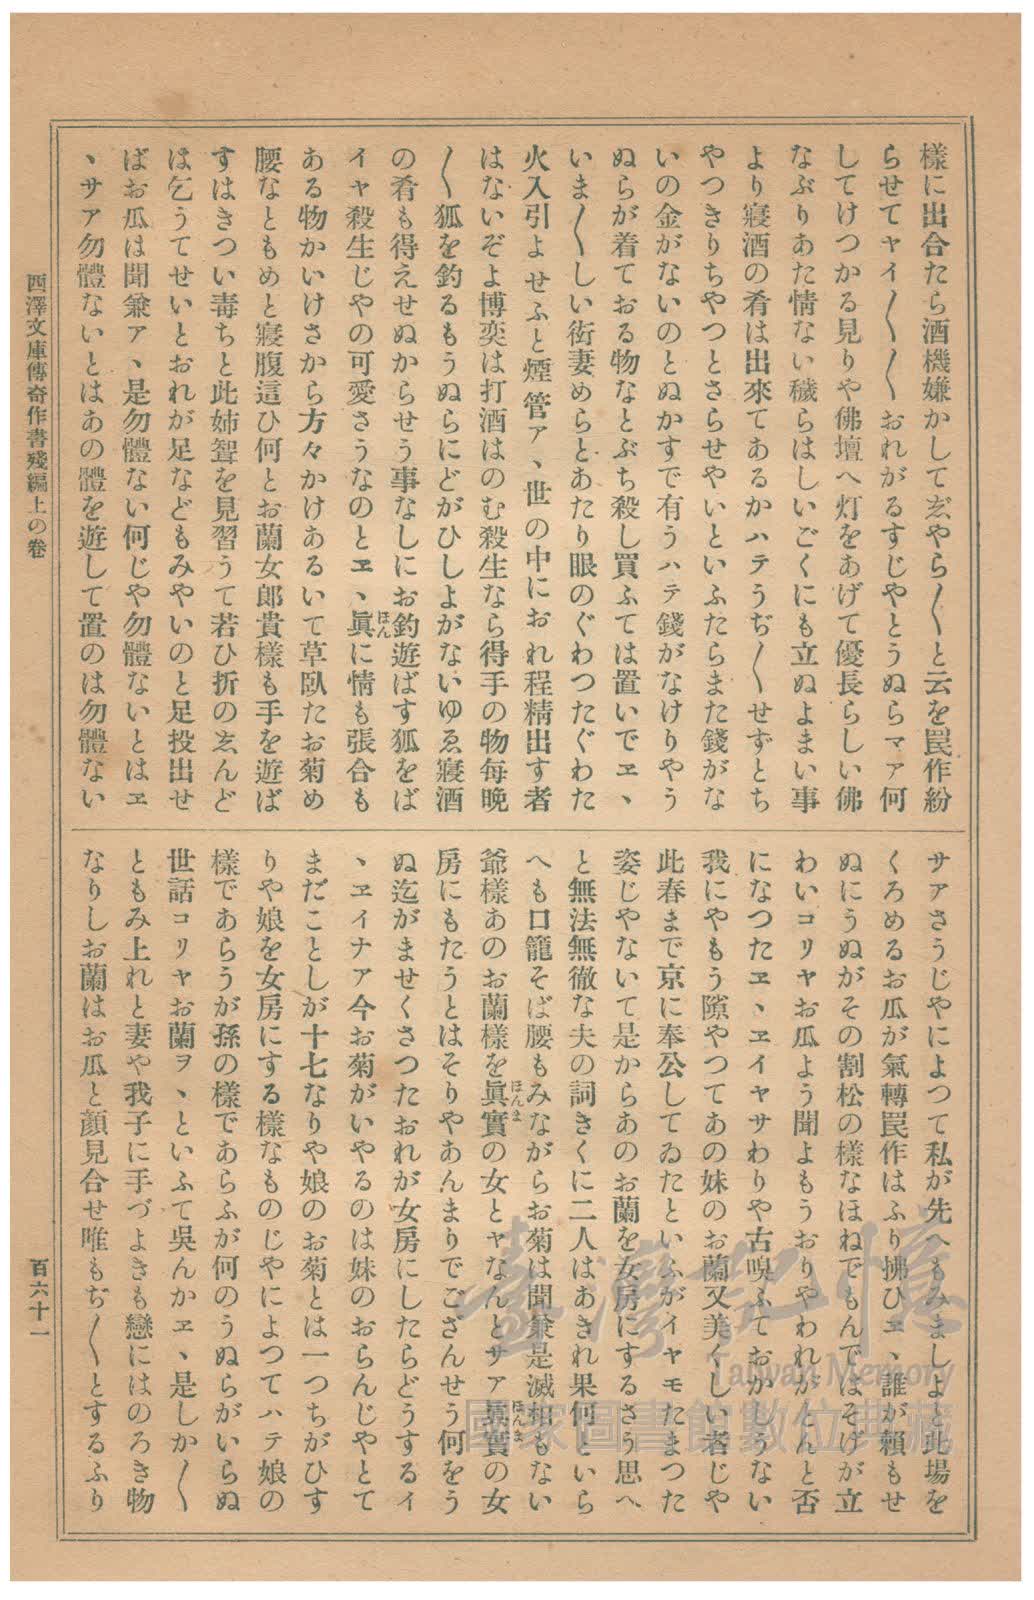 樣に出合たら酒機嫌かしてゑやら〳〵と云を罠作紛
らせてヤイ〳〵〳〵おれがるすじやとうぬらマア何
してけつかる見りや佛壇へ灯をあげて優長らしい佛
なぶりあた情ない穢らはしいごくにも立ぬよまい事
より寢酒の肴は出來てあるかハテうぢ〳〵せずとち
やつきりちやつとさらせやいといふたらまた錢がな
いの金がないのとぬかすで有うハテ錢がなけりやう
ぬらが着ておる物なとぶち殺し買ふては置いでヱヽ
いま〳〵しい衒妻めらとあたり眼のぐわつたぐわた
火入引よせふと煙管アヽ世の中におれ程精出す者
はないぞよ博奕は打酒はのむ殺生なら得手の物每晩
〳〵狐を釣るもうぬらにどがひしよがないゆゑ寢酒
の肴も得えせぬからせう事なしにお釣遊ばす狐をば
イャ殺生じやの可愛さうなのとヱヽ眞に情も張合も
ある物かいけさから方々かけあるいて草臥たお菊め
腰なともめと寢腹這ひ何とお蘭女郞貴樣も手を遊ば
すはきつい毒ちと此姉聟を見習うて若ひ折のゑんど
は乞うてせいとおれが足などもみやいのと足投出せ
ばお瓜は聞兼アヽ是勿體ない何じや勿體ないとはヱ
ヽサア勿體ないとはあの體を遊して置のは勿體ない
サアさうじやによつて私が先へもみましよと此場を
くろめるお瓜が氣轉罠作はふり拂ひヱヽ誰が賴もせ
ぬにうぬがその割松の樣なほねでもんではそげが立
わいコリヤお瓜よう聞よもうおりやわれがとんと否
になつたヱヽヱイヤサわりや古嗅ふておかしうない
我にやもう隙やつてあの妹のお蘭又美くしい者じや
此春まで京に奉公してゐたといふがイャモたまつた
姿じやないて是からあのお蘭を女房にするさう思へ
と無法無徹な夫の詞きくに二人はあきれ果何といら
へも口籠そば腰もみながらお菊は聞兼是滅相もない
爺樣あのお蘭樣を眞實の女とャなんとサア眞實の女
房にもたうとはそりやあんまりでござんせう何をう
ぬ迄がませくさつたおれが女房にしたらどうするイ
ヽヱイナア今お菊がいやるのは妹のおらんじやとて
まだことしが十七なりや娘のお菊とは一つちがひす
りや娘を女房にする樣なものじやによつてハテ娘の
樣であらうが孫の樣であらふが何のうぬらがいらぬ
世話コリヤお蘭ヲヽといふて吳んかヱヽ是しか〳〵
ともみ上れと妻や我子に手づよきも戀にはのろき物
なりしお蘭はお瓜と顏見合せ唯もぢ〳〵とするふり
西澤文庫傳奇作書殘編上の卷
百六十一
臺灣記憶
Taiwan Memory
國家圖書館數位典藏